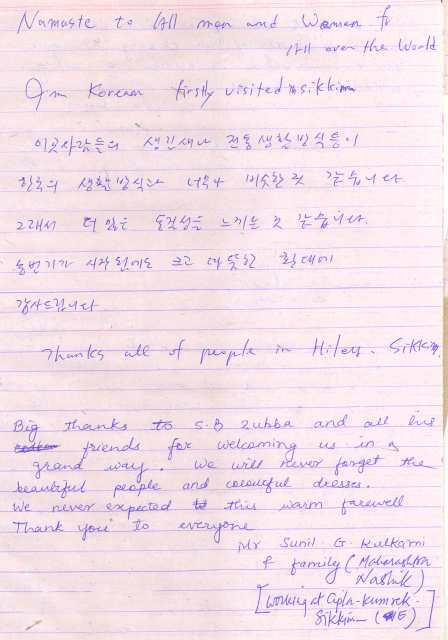 Namaste to All men and Women fr
All over the World
I'm Korean firstly visited in sikkim
이곳사람들의 생김새나 전통생활방식등이
한국의 생활방식과 너무나 비슷한 것 같습니다
그래서 더 많은 동질성을 느끼는 것 같습니다.
농번기가 시작 됐는데도 크고 따뜻한 환대에
감사드립니다
Thanks all of people in Hilery. Sikkim,
Big thanks to S.B Zubba and all his
friends for welcoming us in a
grand way. We will never forget the
beautiful people and colourful dresses.
We never expected this warm farewell
Thank you to everyone
Mr Sunil. G. Kulkarni
& family (Maharashtra
Nashik)
[Working at Cipla-Kumrek.
Sikkim (E)